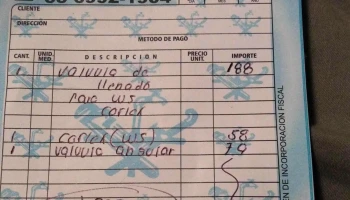 CLIENTE
DIRECCIÓN
METODO DE PAGO
CANT. UNID. MED. DESCRIPCION PRECIO UNIT. IMPORTE
1 valvula de 188
llenado
para WS
1 (WS) 58
1 valvula angular 79
EN DE INCORPORACION FISCAL